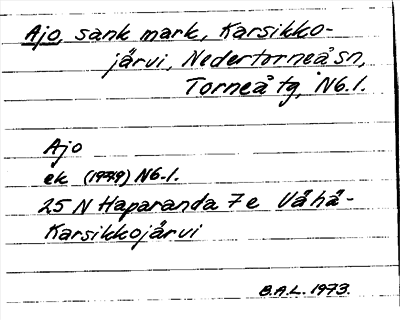 Ajo, sank mark, Karsikko-
järvi, Nedertorneå sn,
Torneå tg, N6.1.
Ajo
ek (1949) N6.1.
25 N Haparanda 7 e Vähä-
Karsikkojärvi
B.A.L. 1973.